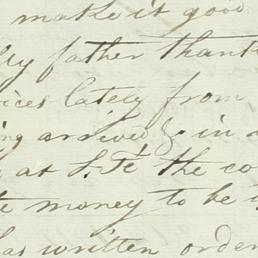 make it good
My father thank
ices lately from
ng arrived & in
at S. Fé the co
e money to be
as written order